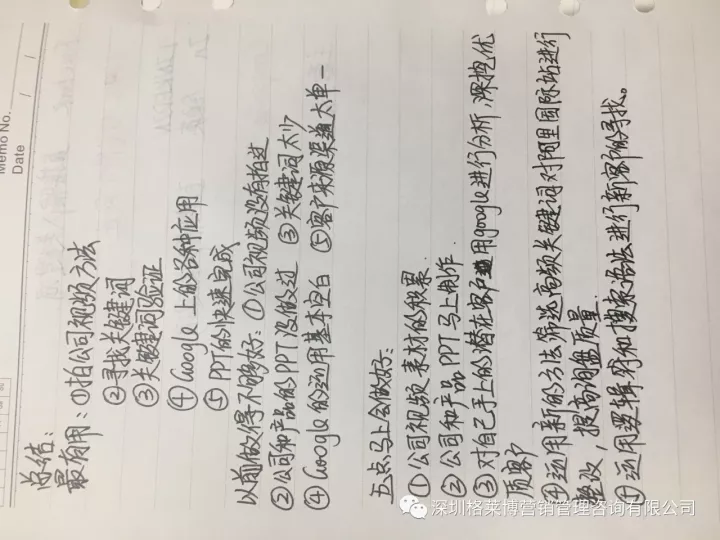 Memo No.
Date / /
总结:
最有用:①拍公司视频方法
②寻找关键词
③关键词验证
④Google上的各种应用
⑤PPT的快速完成
以前做得不够好:①公司视频没有拍过
②公司和产品的PPT没做过 ③关键词太少
④Google的运用基本空白 ⑤客户来源渠道太单一
五点马上会做好:
①公司视频素材的积累.
②公司和产品PPT马上制作.
③对自己手上的潜在客户用google进行分析,深挖优
质客户
④运用新的方法筛选高频关键词对阿里国际站进行
整改,提高询盘质量.
⑤运用逻辑符和搜索语法进行新客户的寻找。
深圳格莱博营销管理咨询有限公司